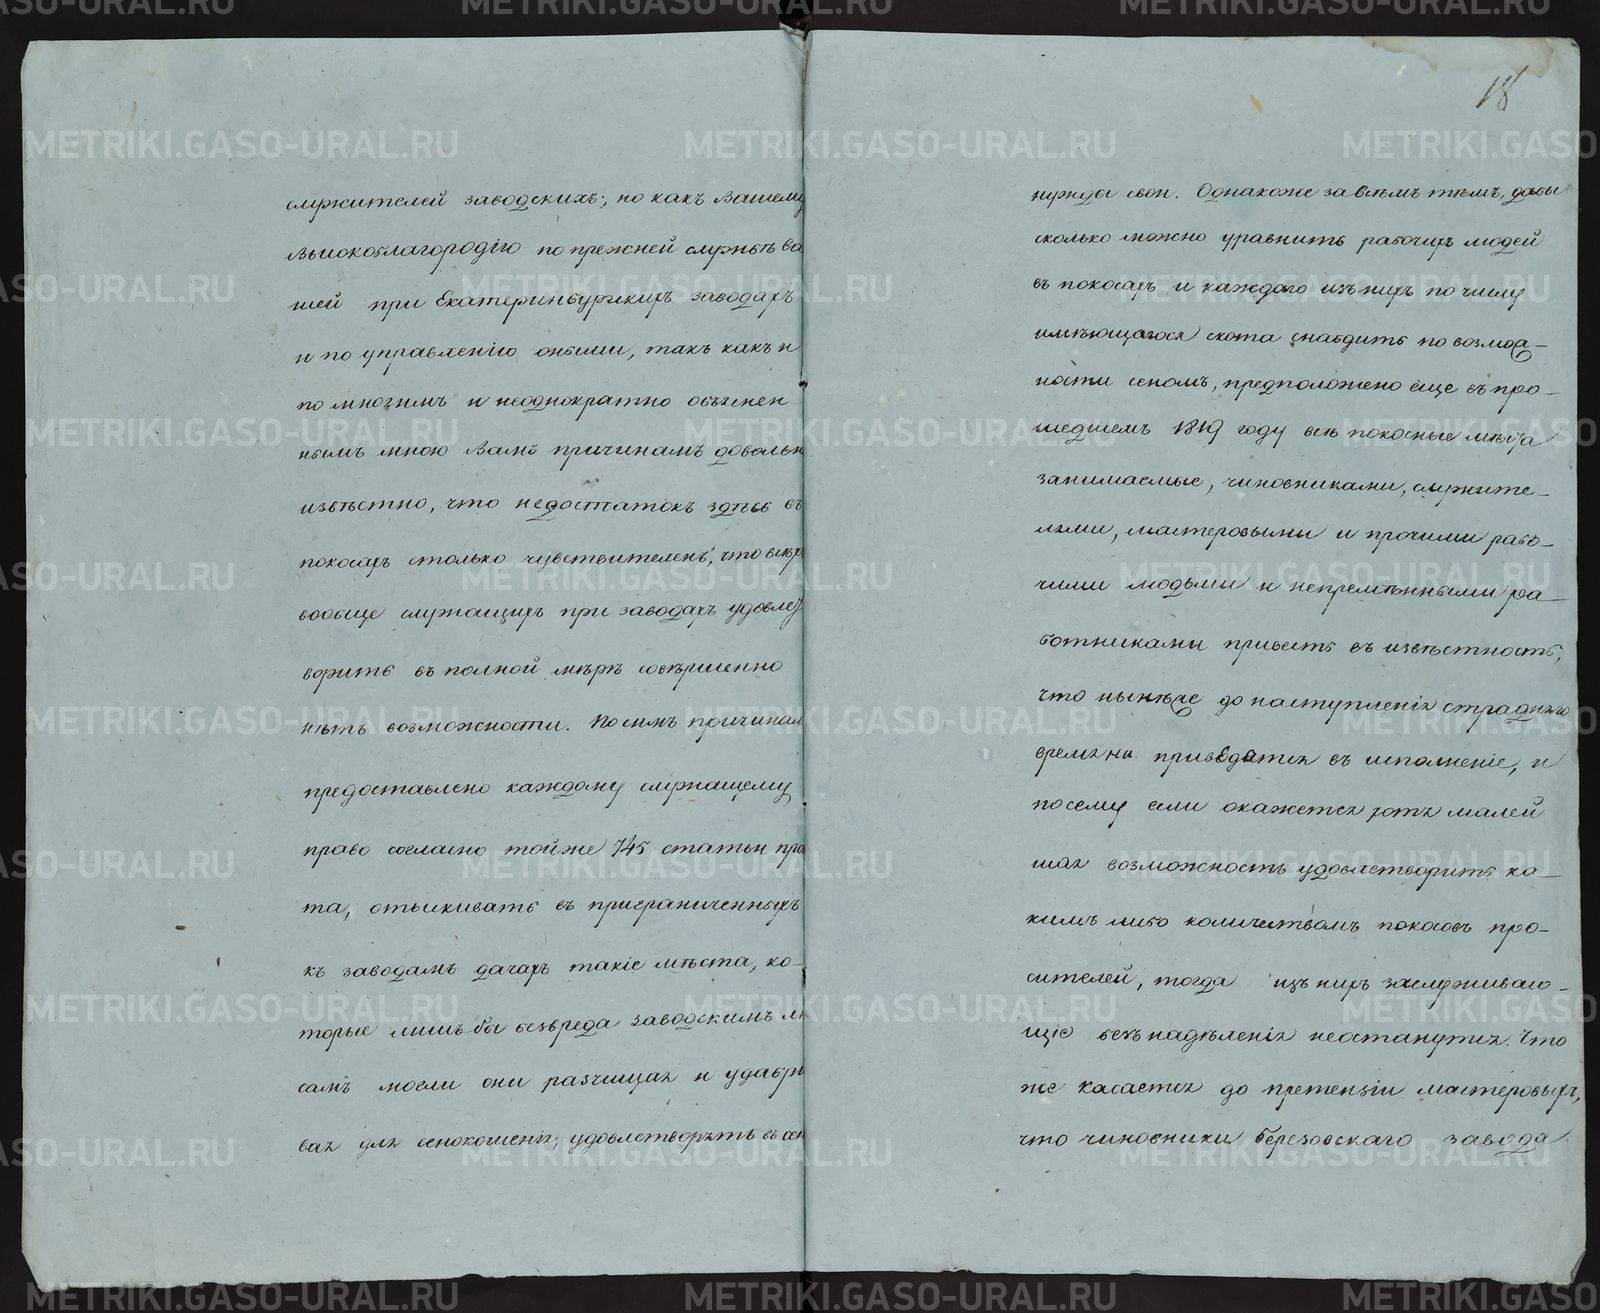 служителей заводскихъ; но какъ Вашему
Высокоблагородію по прежней службѣ ва
шей при Екатеринбургскихъ заводахъ
и по управленію оными, такъ какъ и
по многимъ и неоднократно объяснен
нымъ мною Вамъ причинамъ довольн
извѣстно, что недостатокъ здѣсь въ
покосахъ столько чувствителенъ, что всѣхъ
вообще служащихъ при заводахъ удовлет
ворить въ полной мѣрѣ совершенно
нѣтъ возможности. По симъ причинам
предоставлено каждому служащему
право согласно той же 745 статьи про
та, отыскивать въ приграниченныхъ
къ заводамъ дачахъ такіе мѣста, ко-
торые лишь бы безвреда заводскимъ лѣ
самъ могли они разчищая и удабри
вая для сенокошенія, удовлетворять въ сен
18
нужды свои. Однакоже за всѣмъ тѣмъ, дабы
сколько можно уравнить рабочихъ людей
въ покосахъ и каждого изъ нихъ по числу
имѣющагося скота снабдить по возмож-
ности сеномъ, предположено еще въ про-
шедшемъ 1819 году всѣ покосные мѣста
занимаемые, чиновниками, служите-
лями, мастеровыми и прочими рабо-
чими людьми и непремѣнными ра-
ботниками привесть въ извѣстность,
что нынѣче до наступленія страднаго
времяни приведится въ исполненіе, и
посему если окажется хотя малей
шая возможность удовлетворить ка-
кимъ либо количествомъ покосовъ про-
сителей, тогда изъ нихъ заслуживаю-
щіе безъ надѣленія неостанутся. Что
же касается до претензіи мастеровыхъ,
что чиновники Березовскаго завода
METRIKI.GASO-URAL.RU